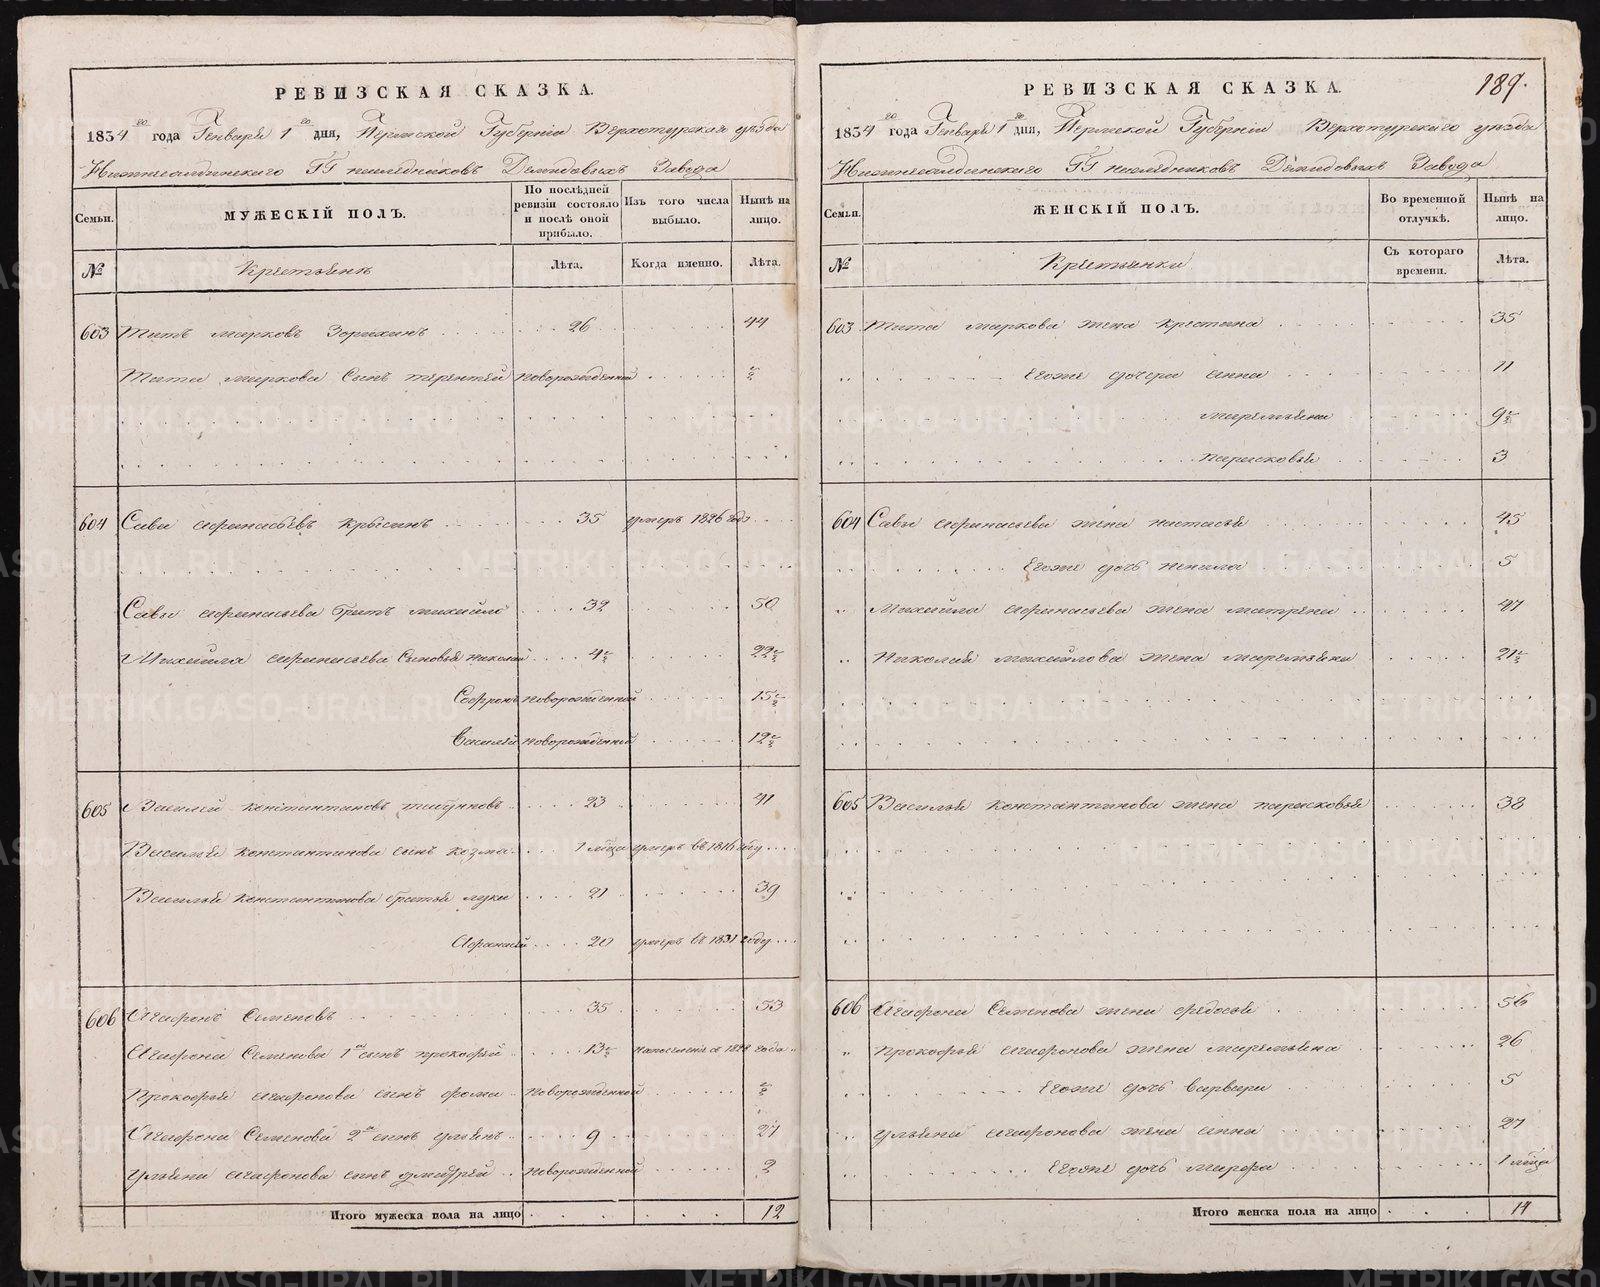 РЕВИЗСКАЯ СКАЗКА.
1834 го года Генваря 1 го дня, Пермской Губерніи Верхотурскаго уѣзда
Нижнесалдинскаго ГГ наследниковъ Демидовыхъ Завода
Семьи.
МУЖЕСКІЙ ПОЛЪ.
По послѣдней ревизіи состояло и послѣ оной прибыло.
Изъ того числа выбыло.
Нынѣ на лицо.
№
Крестьянѣ
Лѣта.
Когда именно.
Лѣта.
603 Титъ марковъ Зорихинъ 26 44
Тита маркова Сынъ терентей новорожденной ½
604 Сава афанасьевъ крысинъ 35 умеръ 1826 года
Савы афанасьева братъ михайло 32 50
Михайла афанасьева Сыновья николай 4½ 22½
Софронъ новорожденной 15½
Василей новорожденной 12½
605 Василей константиновъ 23 41
Василья константинова сынъ козма 1 мѣсца умеръ въ 1816 году
Василья константинова братья лука 21 39
Афанасей 20 умеръ въ 1831 году
606 Агафонъ Семеновъ 35 53
Агафона Семенова 1й сынъ прокофей 13½
Прокофья агафонова сынъ фома новорожденной ½
Агафона Семенова 2й сынъ ульянъ 9 27
Ульяна агафонова сынъ дмитрей новорожденной 2
Итого мужеска пола на лицо 12
189.
РЕВИЗСКАЯ СКАЗКА.
1834 го года Генваря 1 го дня, Пермской Губерніи Верхотурскаго уѣзда
Нижнесалдинскаго ГГ наследниковъ Демидовыхъ Завода
Семьи.
ЖЕНСКІЙ ПОЛЪ.
Во временной отлучкѣ.
Нынѣ на лицо.
№
Крестьянки
Съ котораго времени.
Лѣта.
603 Тита маркова жена крестина 35
Егоже дочери анна 11
маремьяна 9½
парасковья 3
604 Савы афанасьева жена настасья 45
Егоже дочь ненила 5
Михайла афанасьева жена матрена 47
Николая михайлова жена маремьяна 21½
605 Василья константинова жена парасковья 38
606 Агафона Семенова жена федосья 56
прокофья агафонова жена маремьяна 26
Егоже дочь варвара 5
ульяна агафонова жена анна 27
Егоже дочь марфа 1 мѣсца
Итого женска пола на лицо 14
METRIKI.GASO-URAL.RU